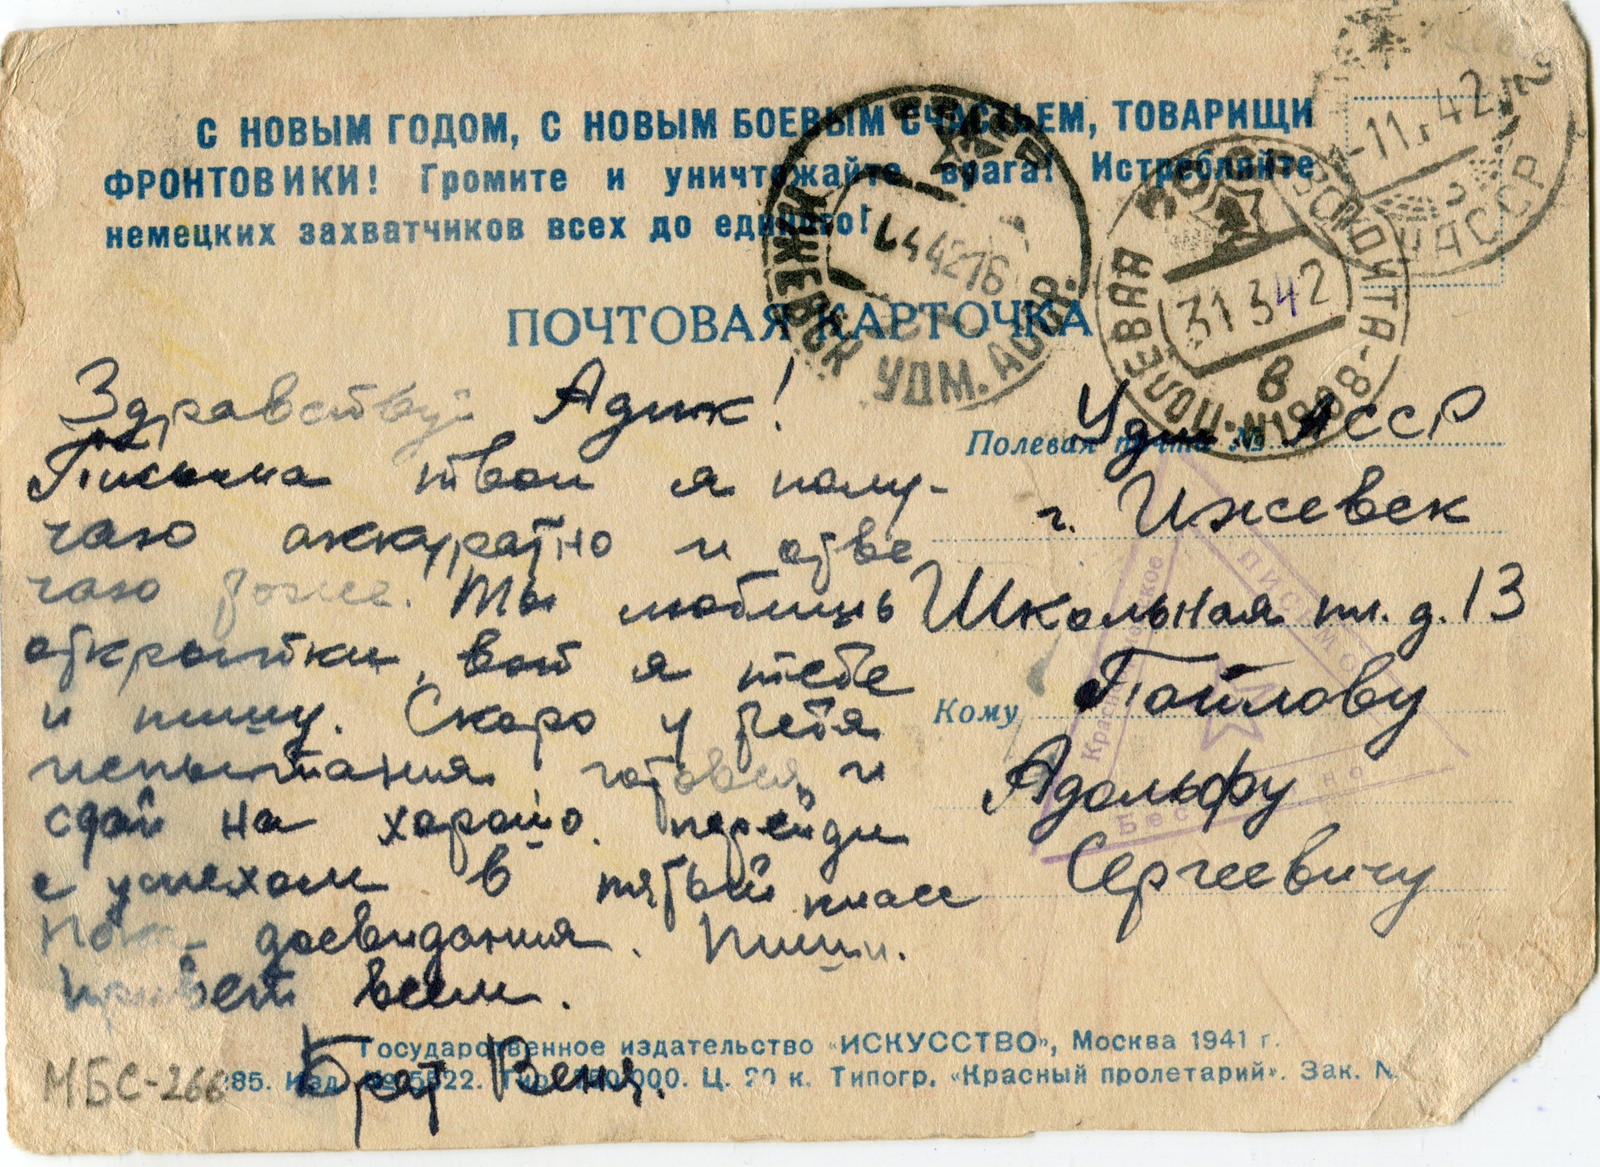 С НОВЫМ ГОДОМ, С НОВЫМ БОЕВЫМ СЧАСТЬЕМ, ТОВАРИЩИ
ФРОНТОВИКИ! Громите и уничтожайте врага! Истребляйте
немецких захватчиков всех до единого!
ПОЧТОВАЯ КАРТОЧКА
СССР
ИЖЕВСК УДМ. АССР.
4 4 42 16
СССР
ПОЛЕВАЯ
31 3 42
в
-11. 42
АССР
Здравствуй Адик!
Письма твои я полу-
чаю аккуратно и отве
чаю тоже. Ты любишь
открытки, вот я тебе
и пишу. Скоро у тебя
испытания готовься и
сдай на хорошо. перейди
с успехом в пятый класс
Пока досвидания. Пиши.
Привет всем.
Брат Веня.
Полевая почта №
Удм АССР
г. Ижевск
Школьная пл. д. 13
Кому Пойлову
Адольфу
Сергеевичу
Красноармейское
ПИСЬМО
Бесплатно
Государственное издательство «ИСКУССТВО», Москва 1941 г.
285. Изд. № 5822. 000. Ц. 20 к. Типогр. «Красный пролетарий». Зак. №
МБС-266